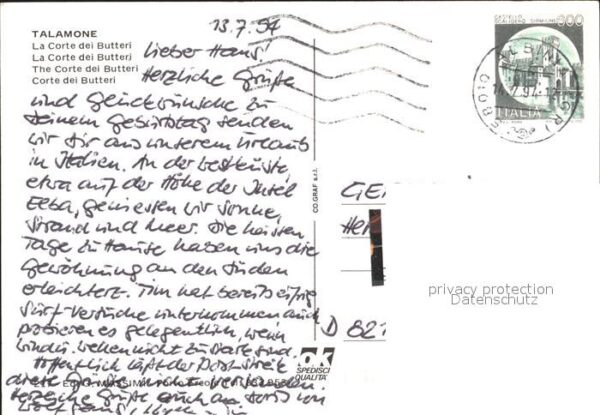 TALAMONE
La Corte dei Butteri
La Corte dei Butteri
The Corte dei Butteri
Corte dei Butteri
13.7.94
Lieber Hans!
Herzliche Grüße
und Glückwünsche zu
Deinem Geburtstag senden
wir Dir aus unserem Urlaub
in Italien. An der Westküste,
etwa auf der Höhe der Insel
Elba, genießen wir Sonne,
Strand und Meer. Die heissen
Tage zu Hause haben uns die
Gewöhnung an den Süden
erleichtert. Tim hat bereits eifrig
Surf-Versuche unternommen auch
probieren es gelegentlich, wenn
Wind u. Wellen nicht zu stark sind.
Hoffentlich läßt der Poststreik
diese Grüße
Herzliche Grüße auch an
Wolfgang,
CO.GRAF s.r.l.
600
ITALIA
ALBINIA
58010
GE
He
D 821
ok
SPEDISCI
QUALITÀ
privacy protection
Datenschutz